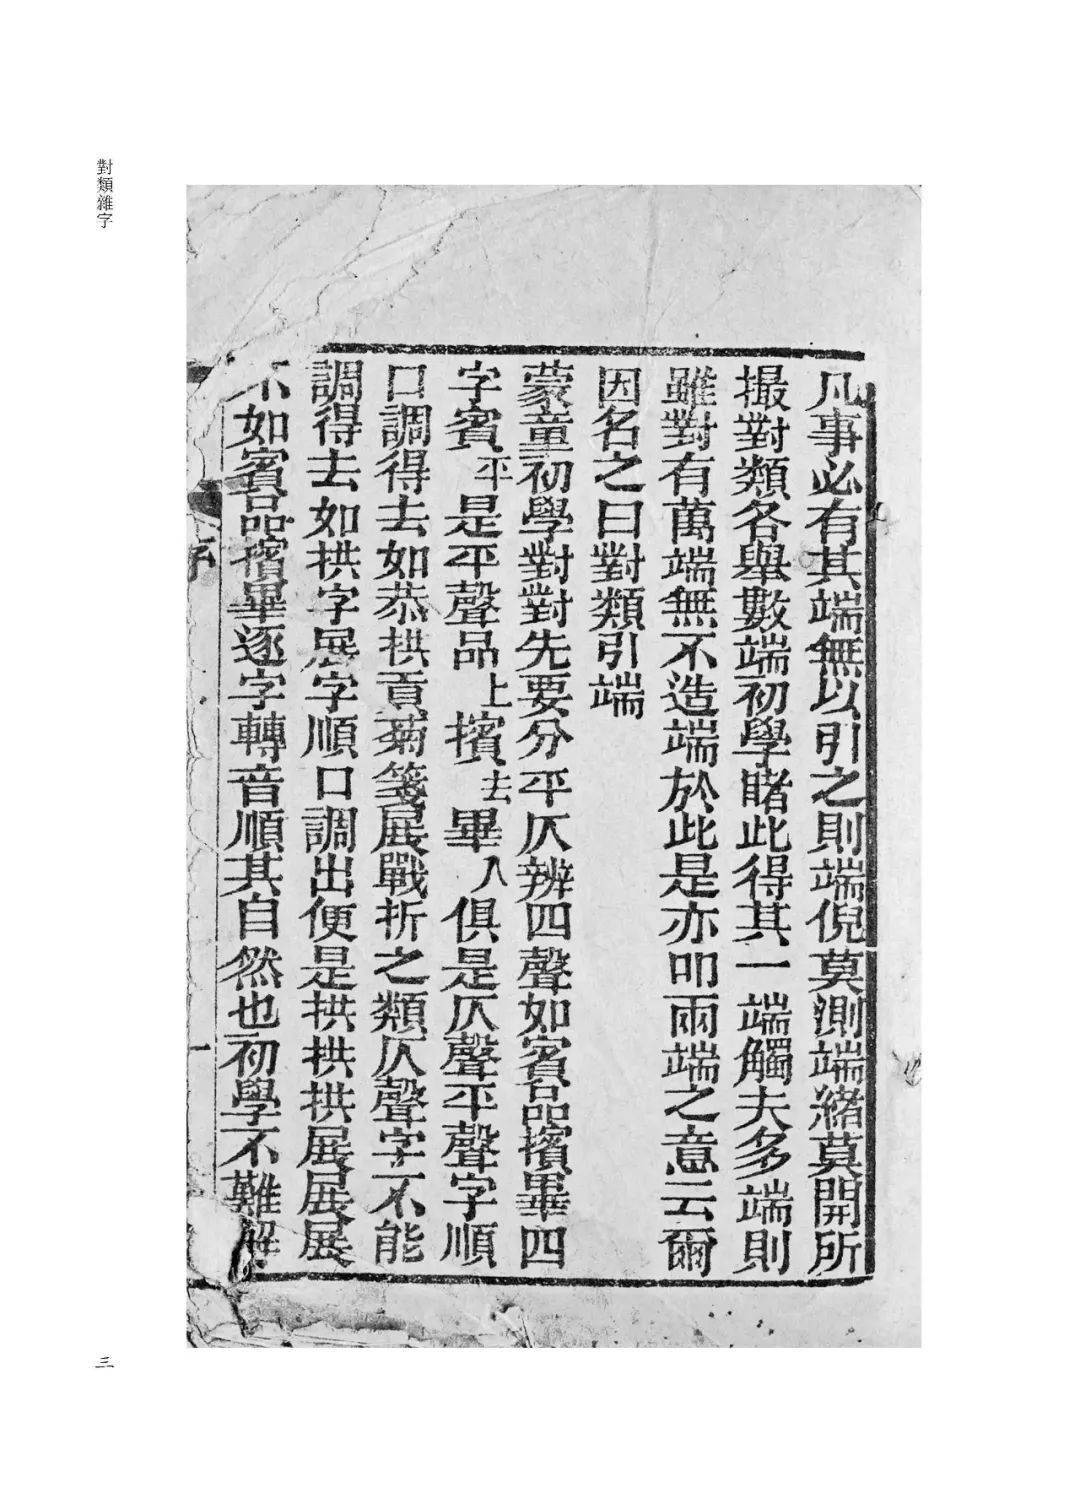 對類雜字
凡事必有其端無以引之則端倪莫測端緒莫開所
撮對類各舉數端初學賭此得其一端觸夫多端則
雖對有萬端無不造端於此是亦叩兩端之意云爾
因名之曰對類引端
蒙童初學對對先要分平仄辨四聲如賓品擯畢四
字賓平是平聲品上擯去畢入俱是仄聲平聲字順
口調得去如恭拱貢菊箋展戰折之類仄聲字不能
調得去如拱字展字順口調出便是拱拱拱展展展
不如賓品擯畢逐字轉音順其自然也初學不難解
序
一
三